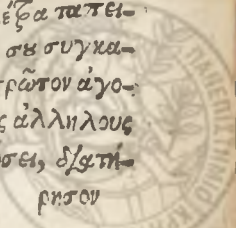 έξα ταπει-
συ συγκα-
πρῶτον ἀγο-
ς ἀλλήλους
σει, διατή-
ρησον